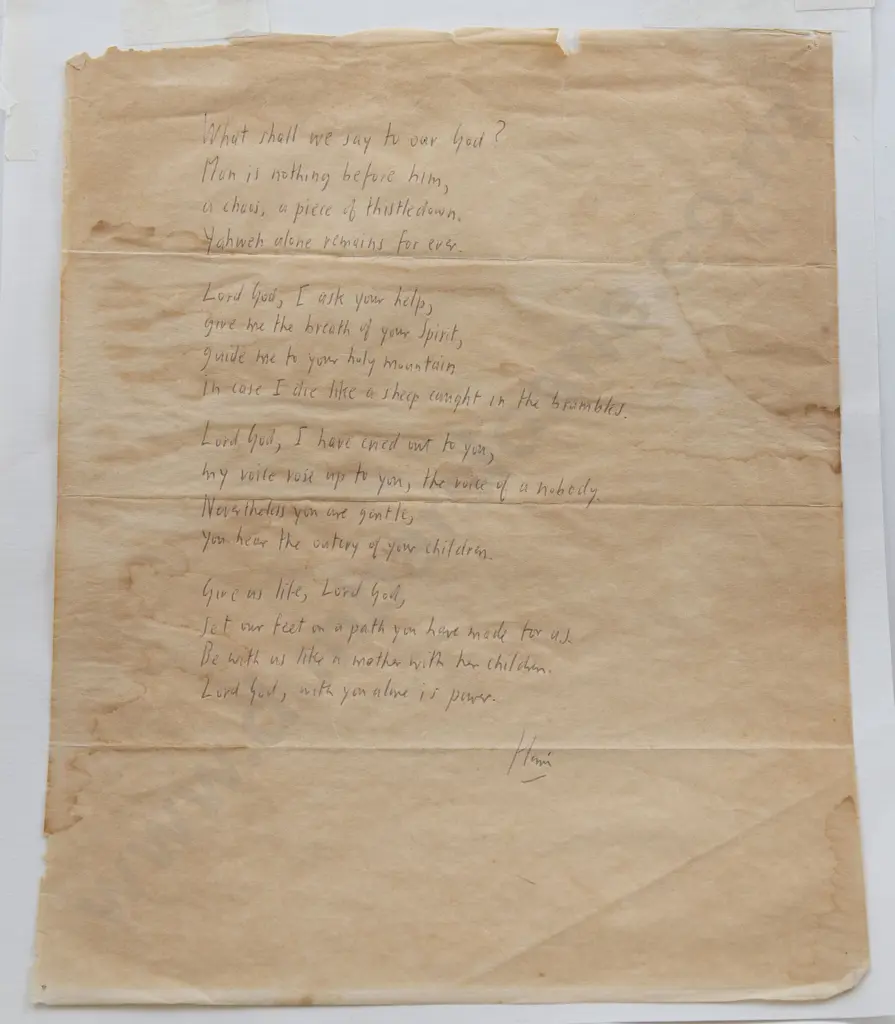 What shall we say to our God?
Man is nothing before him,
a chaos, a piece of thistledown.
Yahweh alone remains for ever.
Lord God, I ask your help,
give me the breath of your Spirit,
guide me to your holy mountain
in case I die like a sheep caught in the brambles.
Lord God, I have cried out to you,
my voice rose up to you, the voice of a nobody.
Nevertheless you are gentle,
you hear the outcry of your children.
Give us life, Lord God,
set our feet on a path you have made for us.
Be with us like a mother with her children.
Lord God, with you alone is power.